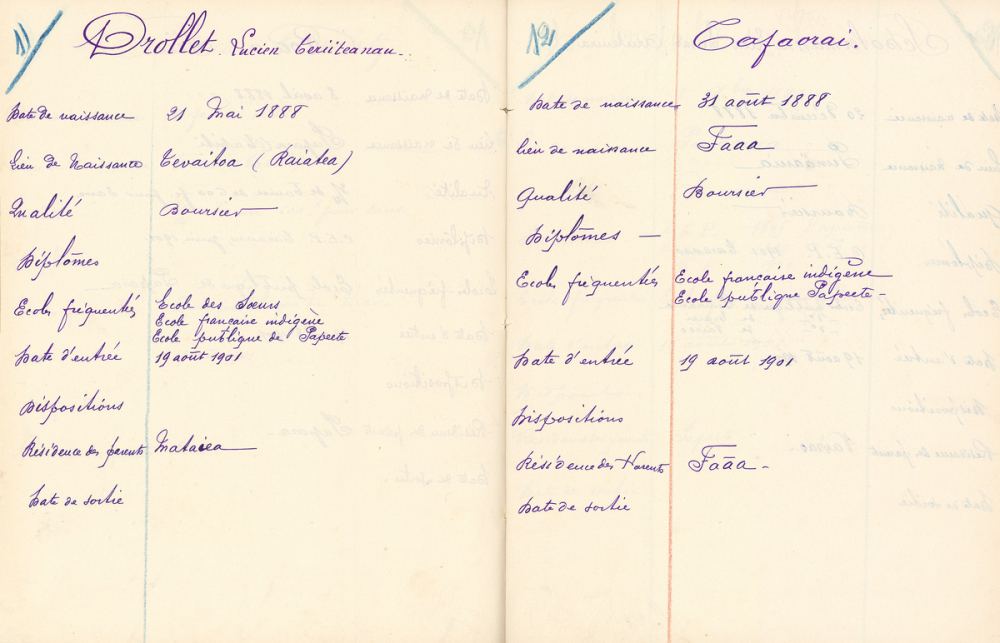 11)
Drollet. Lucien Teriiteanau.
Date de naissance 21 Mai 1888
Lieu de Naissance Tevaitoa (Raiatea)
Qualité Boursier
Diplômes
Ecoles fréquentées Ecole des Sœurs
Ecole française indigène
Ecole publique de Papeete
Date d'entrée 19 août 1901
Dispositions
Résidence des parents Mataiea
Date de sortie
12)
Tafaorai.
Date de naissance 31 août 1888
lieu de naissance Faaa
Qualité Boursier
Diplômes —
Ecoles fréquentées Ecole française indigène
Ecole publique Papeete -
Date d'entrée 19 août 1901
Dispositions
Résidence des Parents Faaa -
Date de sortie